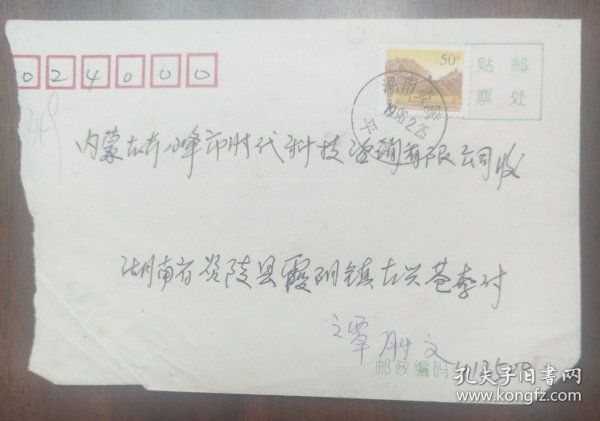 024000
50分
贴邮
票处
1998.2.25
内蒙古赤峰市时代科技咨询有限公司收
湖南省炎陵县霞阳镇古兴巷李付
谭胜文
邮政编码
孔夫子旧书网
www.kongfz.com